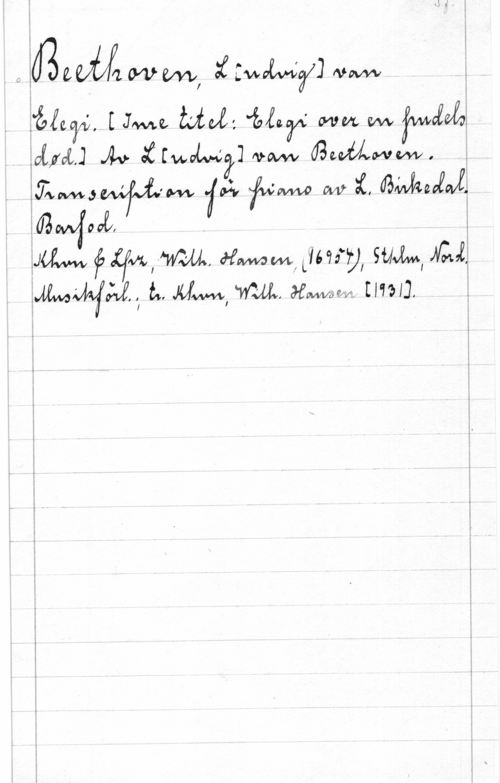 Beethoven, L[udvig] van
Elegi. [Inre titel: Elegi over en pudels
død.] Av L[udvig] van Beethoven.
Transcription för piano av L. Birkedal
Barfod.
Khvn & Lpz, Wilh. Hansen, (16957), Sthlm, Nord.
Musikförl., tr. Khvn, Wilh. Hansen [1931].